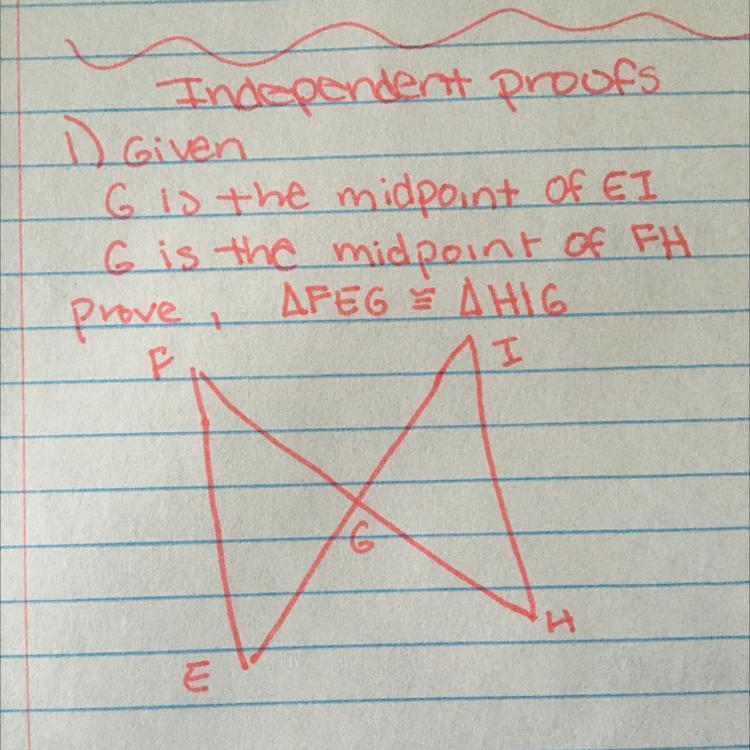 Independent proofs
1) Given
G is the midpoint of EI
G is the midpoint of FH
prove, ΔFEG ≅ ΔHIG
F
I
G
H
E